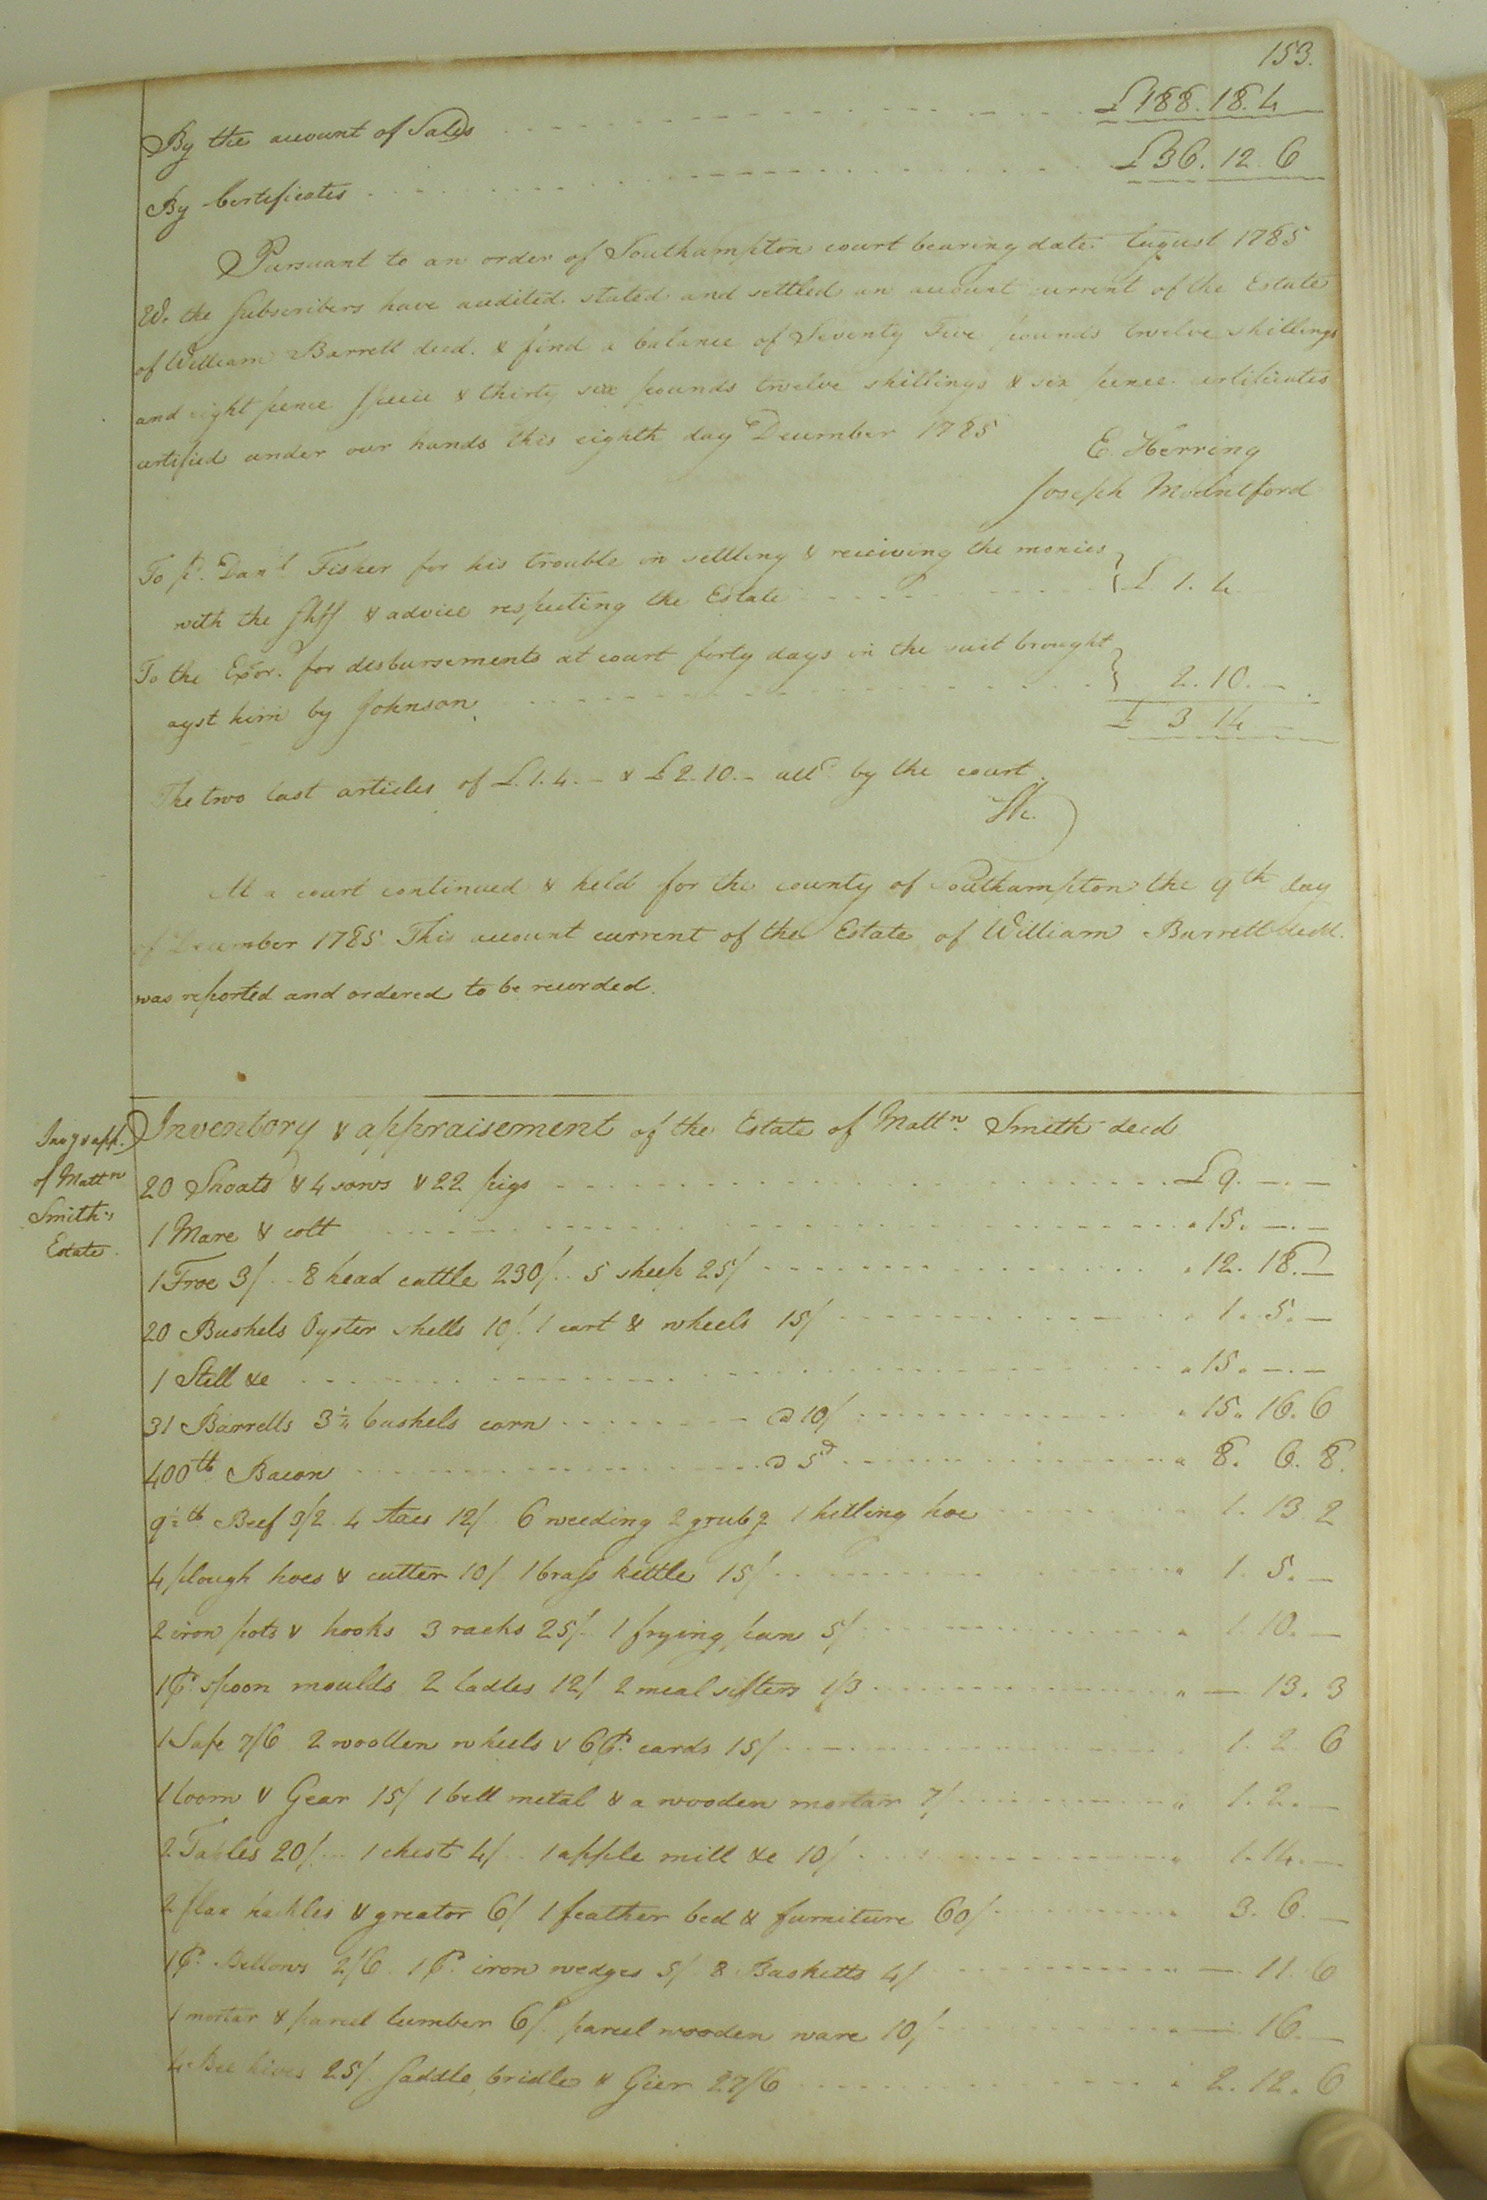 153.
By the account of Sales £188. 18. 4
By Certificates £36. 12. 6
Pursuant to an order of Southampton court bearing date August 1785
We the subscribers have audited. stated and settled an account current of the Estate
of William Barrett decd. & find a balance of Seventy Five pounds twelve shillings
and eight pence specie & thirty six pounds twelve shillings & six pence certificates
certified under our hands this eighth day December 1785
E. Herring
Joseph Mountford
To pd. Danl. Fisher for his trouble in settling & receiving the monies
with the shff & advice respecting the Estate £ 1. 4
To the Exor. for disbursements at court forty days in the suit brought
agst him by Johnson 2. 10. —
£ 3 14
The two last articles of £. 1. 4. — & £2. 10. — alld. by the court.
At a court continued & held for the county of Southampton the 9th day
of December 1785 This account current of the Estate of William Barrett decd.
was reported and ordered to be recorded.
Invy & app.
of Matt w
Smith's
Estate.
Inventory & appraisement of the Estate of Mattw. Smith decd
20 Shoats & 4 sows & 22 pigs £ 9. —. —
1 Mare & colt 15. —. —
1 Froe 3/ .. 8 head cattle 230/ .. 5 sheep 25/ 12. 18. —
20 Bushels Oyster shells 10/. 1 cart & wheels 15/ 1. 5. —
1 Still &c 15. —. —
31 Barrells 3¼ bushels corn @ 10/ 15. 16. 6
400 lb Bacon @ 5d 8. 6. 8.
9½ lb Beef 3/2 4 Axes 12/ 6 weeding 2 grubg 1 hilling hoe 1. 13. 2
4 plough hoes & cutter 10/ 1 brass kettle 15/ 1. 5. —
2 iron pots & hooks 3 racks 25/. 1 frying pan 5/ 1. 10. —
1 Pr. spoon moulds 2 ladles 12/ 2 meal sifters 1/3 — 13. 3
1 Safe 7/6 2 woollen wheels & 6 Pr. cards 15/ 1. 2. 6
1 loom & Gear 15/ 1 bell metal & a wooden mortar 7/ 1. 2. —
2 Tables 20/ .. 1 chest 4/ .. 1 apple mill &c 10/ 1. 14. —
2 flax hackles & greator 6/ 1 feather bed & furniture 60/ 3. 6. —
1 Pr. Bellows 2/6 1 Pr. iron wedges 5/ 8 Basketts 4/ — 11. 6
1 mortar & parcel lumber 6/. parcel wooden ware 10/ — 16. —
4 Bee hives 25/. saddle, bridle & Gier 27/6 2. 12. 6